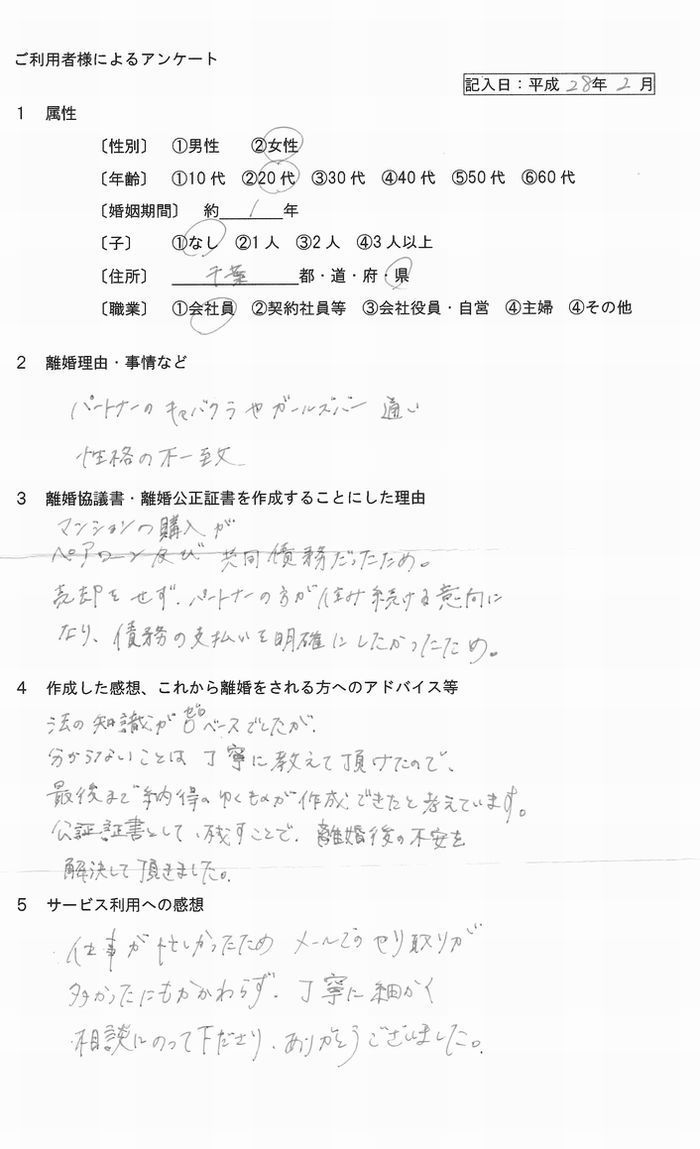 ご利用者様によるアンケート
記入日：平成 28年 2 月
1 属性
〔性別〕 ①男性 ②女性
〔年齢〕 ①10代 ②20代 ③30代 ④40代 ⑤50代 ⑥60代
〔婚姻期間〕 約 1 年
〔子〕 ①なし ②1人 ③2人 ④3人以上
〔住所〕 千葉 都・道・府・県
〔職業〕 ①会社員 ②契約社員等 ③会社役員・自営 ④主婦 ④その他
2 離婚理由・事情など
パートナーのキャバクラやガールズバー通い
性格の不一致
3 離婚協議書・離婚公正証書を作成することにした理由
マンションの購入が
ペアローン及び共同債務だったため。
売却をせず、パートナーの方が住み続ける意向に
なり、債務の支払いを明確にしたかったため。
4 作成した感想、これから離婚をされる方へのアドバイス等
法の知識がゼロベースでしたが、
分からないことは丁寧に教えて頂けたので、
最後まで納得のゆくものが作成できたと考えています。
公証証書として残すことで、離婚後の不安を
解決して頂きました。
5 サービス利用への感想
仕事が忙しかったためメールでのやり取りが
多かったにもかかわらず、丁寧に細かく
相談にのって下さり、ありがとうございました。